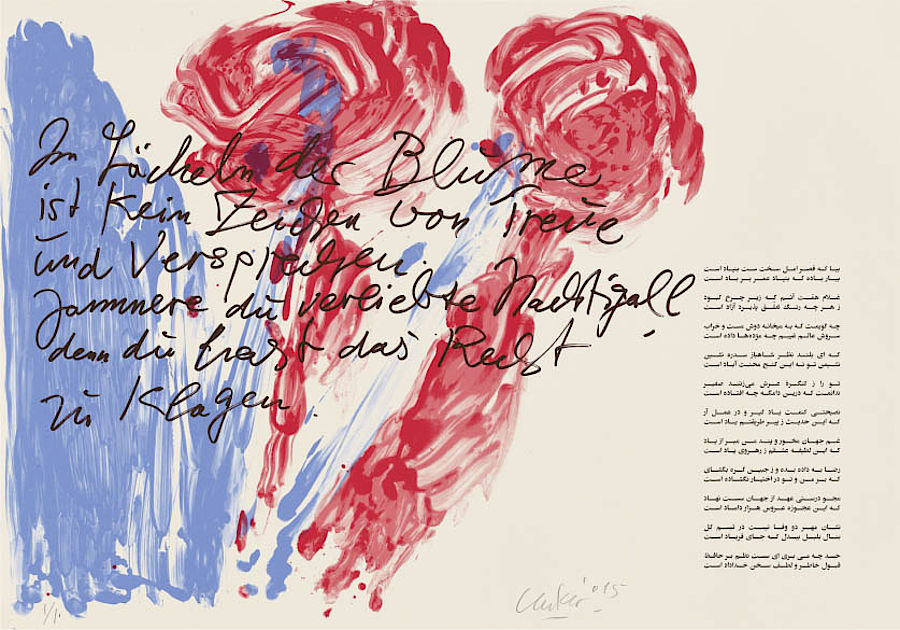 Im Lächeln der Blume
ist kein Zeichen von Treue
und Versprechen.
Jammere du verliebte Nachtigall
denn du hast das Recht !
zu Klagen.
بیا که قصر امل سخت سست بنیاد است
بیار باده که بنیاد عمر بر باد است
غلام همت آنم که زیر چرخ کبود
ز هر چه رنگ تعلق پذیرد آزاد است
چه گویمت که به میخانه دوش مست و خراب
سروش عالم غیبم چه مژده‌ها داده است
که ای بلند نظر شاهباز سدره نشین
نشیمن تو نه این کنج محنت آباد است
تو را ز کنگره عرش می‌زنند صفیر
ندانمت که درین دامگه چه افتاده است
نصیحتی کنمت یاد گیر و در عمل آر
که این حدیث ز پیر طریقتم یاد است
غم جهان مخور و پند من مبر از یاد
که این لطیفه عشقم ز رهروی یاد است
رضا به داده بده و ز جبین گره بگشای
که بر من و تو در اختیار نگشاده است
مجو درستی عهد از جهان سست نهاد
که این عجوزه عروس هزار داماد است
نشان مهر و وفا نیست در تبسم گل
بنال بلبل بیدل که جای فریاد است
حسد چه می بری ای سست نظم بر حافظ
قبول خاطر و لطف سخن خداداد است
Uecker '015